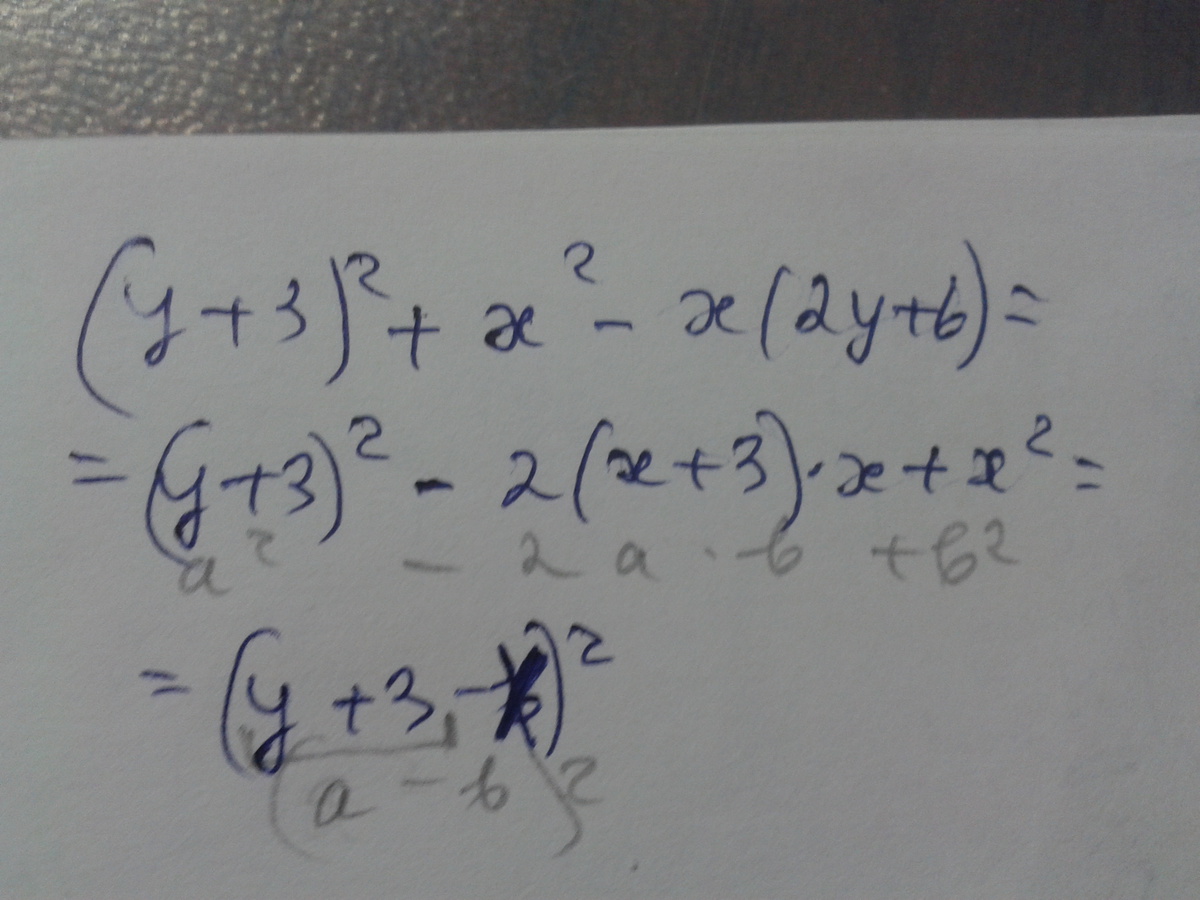 (y+3)² + x² - x(2y+6) =
= (y+3)² - 2(x+3)·x + x² =
a² - 2a·b + b²
= (y+3-x)²
(a-b)²